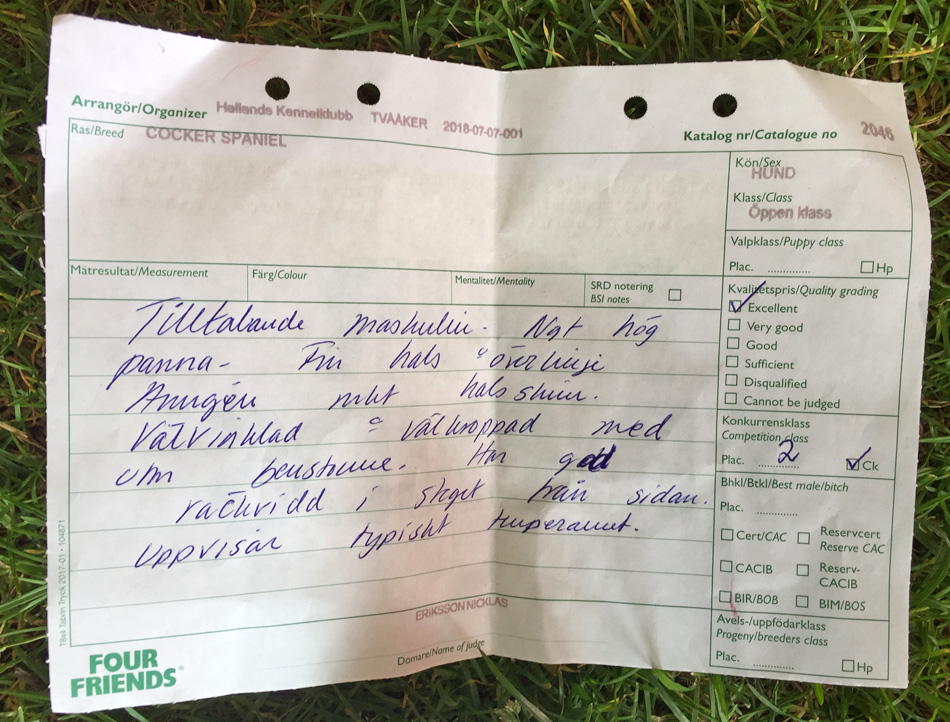 Arrangör/Organizer Hallands Kennelklubb TVÅÅKER 2018-07-07-001
Katalog nr/Catalogue no 2046
Ras/Breed COCKER SPANIEL
Kön/Sex
HUND
Klass/Class
Öppen klass
Valpklass/Puppy class
Plac. ............. Hp
Mätresultat/Measurement Färg/Colour Mentalitet/Mentality SRD notering
BSI notes
Tilltalande maskulin. Ngt hög
panna. Fin hals o överlinje
Anngen mkt halsskinn.
Välvinklad o välkroppad med
utm benstomme. Har god
räckvidd i steget från sidan.
Uppvisar typiskt temperament.
Kvalitetspris/Quality grading
Excellent
Very good
Good
Sufficient
Disqualified
Cannot be judged
Konkurrensklass
Competition class
Plac. 2 Ck
Bhkl/Btkl/Best male/bitch
Plac. ............
Cert/CAC Reservcert
Reserve CAC
CACIB Reserv-
CACIB
BIR/BOB BIM/BOS
Avels-/uppfödarklass
Progeny/breeders class
Plac. ............ Hp
ERIKSSON NICKLAS
Domare/Name of judge
FOUR
FRIENDS
Tabrin Tryck 2017-01 • 104871